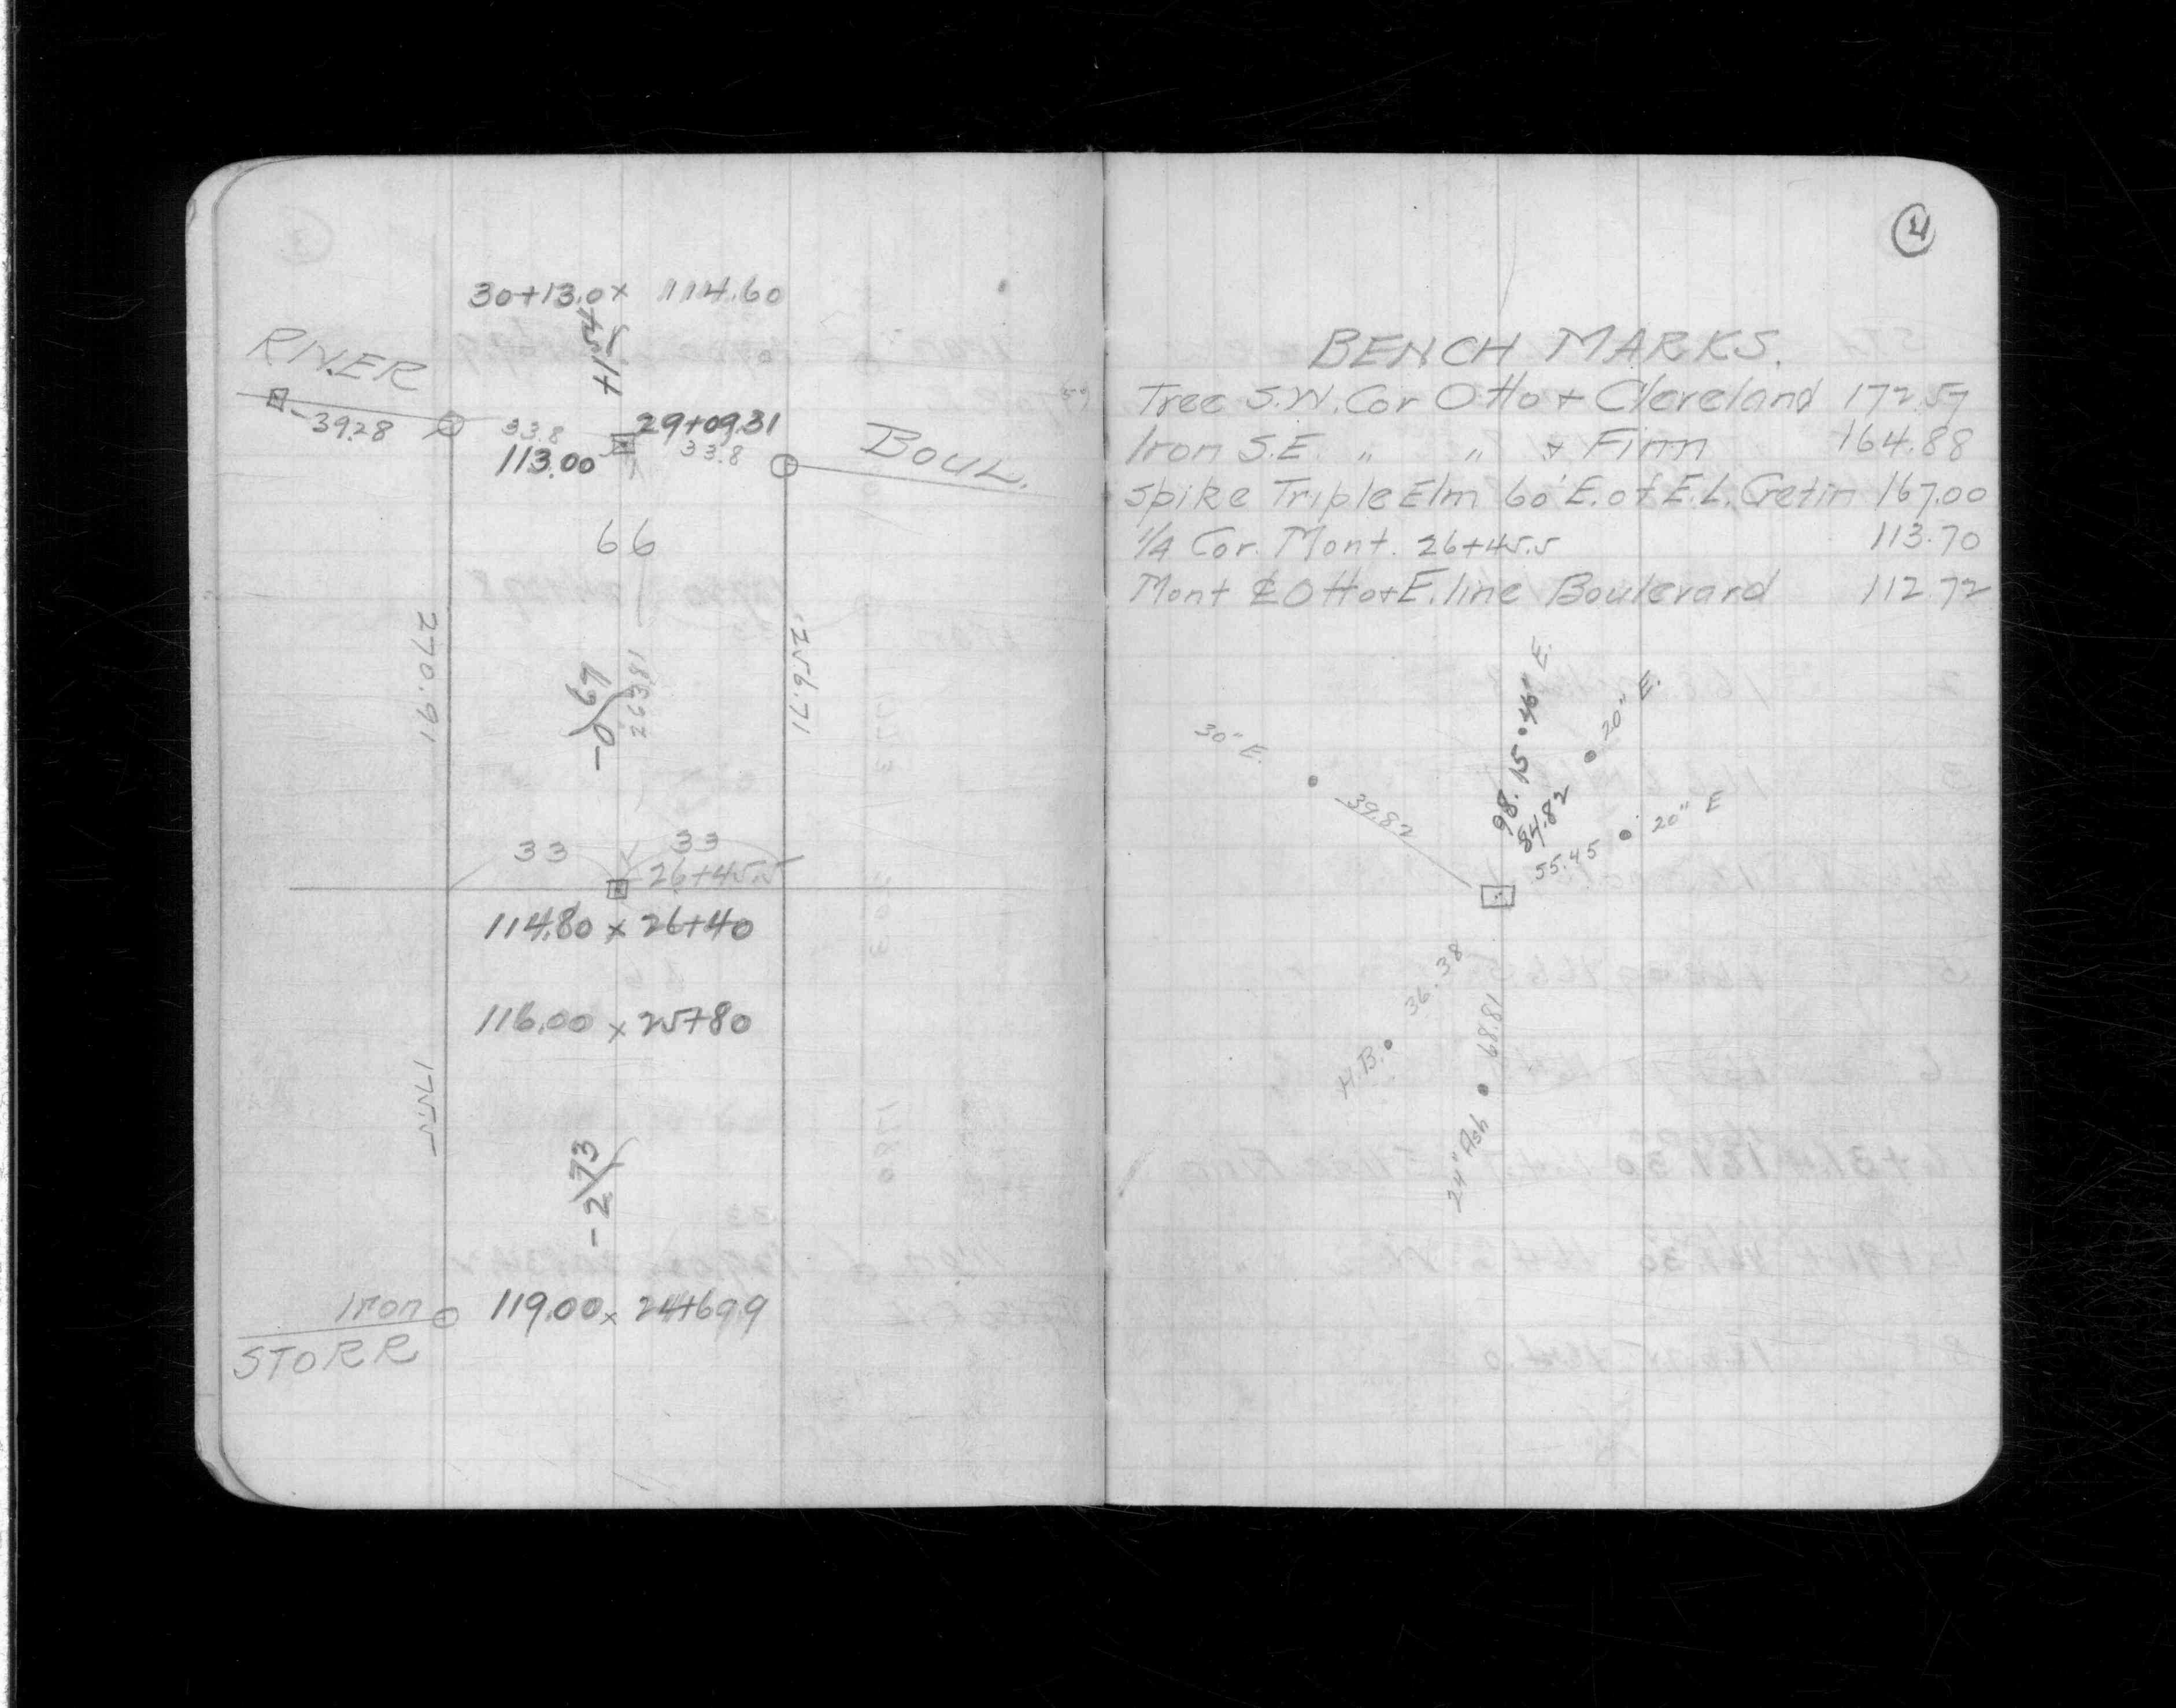 30+13.0 x 114.60
+1.54
RIVER
-39.28
33.8
29+09.31
113.00
33.8
BOUL.
66
270.91
-0.69
263.81
256.71
33
33
26+45.5
114.80 x 26+40
116.00 x 25+80
175.5
-2.73
Iron
119.00 x 24+69.9
STORR
4
BENCH MARKS.
Tree S.W. Cor Otto + Cleveland 172.57
Iron S.E. " " & Finn 164.88
Spike Triple Elm 60' E. of E.L. Cretin 167.00
1/4 Cor. Mont. 26+45.5 113.70
Mont ℄ Otto + E. line Boulevard 112.72
30" E.
39.82
98.15
E.
20" E.
84.82
20" E
55.45
36.38
H.B.
68.81
24" Ash